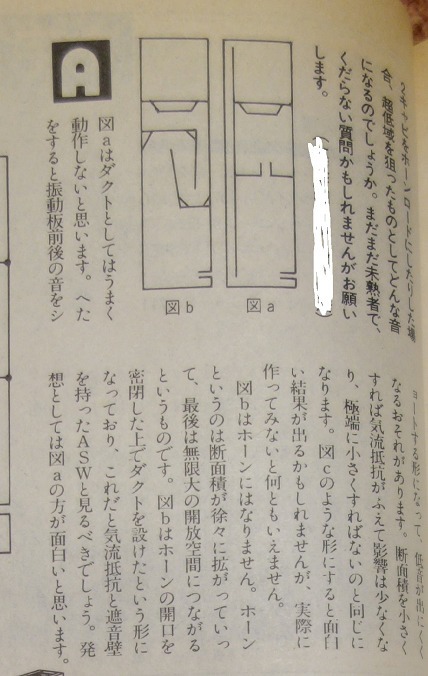 クキャビをホーンロードにしたりした場
合、超低域を狙ったものとしてどんな音
になるのでしょうか。まだまだ未熟者で、
くだらない質問かもしれませんがお願い
します。
図a
図b
A
図aはダクトとしてはうまく
動作しないと思います。へた
をすると振動板前後の音をシ
ョートする形になって、低音が出にくく
なるおそれがあります。断面積を小さく
すれば気流抵抗がふえて影響は少なくな
り、極端に小さくすればないのと同じに
なります。図cのような形にすると面白
い結果が出るかもしれませんが、実際に
作ってみないと何ともいえません。
図bはホーンにはなりません。ホーン
というのは断面積が徐々に拡がっていっ
て、最後は無限大の開放空間につながる
というものです。図bはホーンの開口を
密閉した上でダクトを設けたという形に
なっており、これだと気流抵抗と遮音壁
を持ったASWと見るべきでしょう。発
想としては図aの方が面白いと思います。